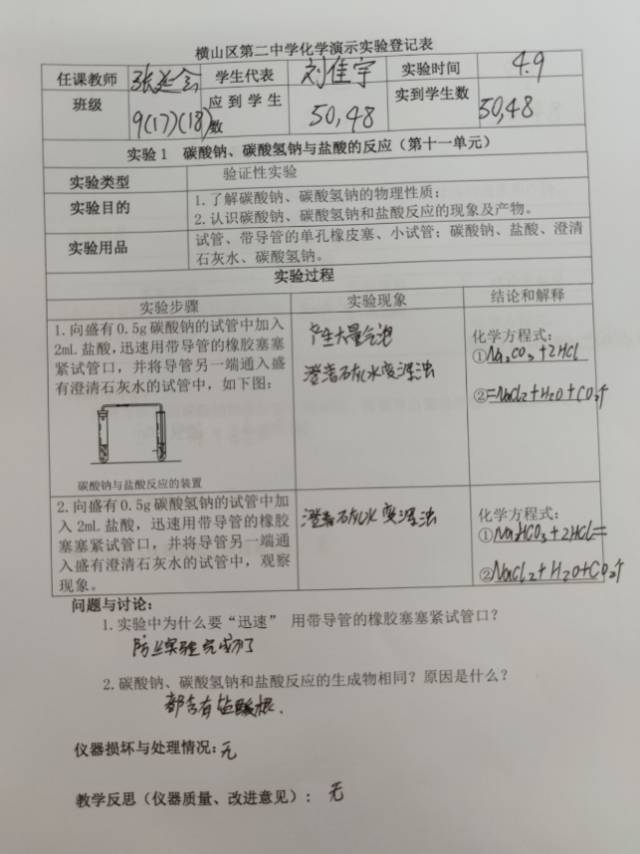 横山区第二中学化学演示实验登记表
任课教师 学生代表 刘佳宇 实验时间 4.9
班级 9(17)(18) 应到学生数 50,48 实到学生数 50,48
实验1 碳酸钠、碳酸氢钠与盐酸的反应（第十一单元）
实验类型 验证性实验
实验目的 1.了解碳酸钠、碳酸氢钠的物理性质；
2.认识碳酸钠、碳酸氢钠和盐酸反应的现象及产物。
实验用品 试管、带导管的单孔橡皮塞、小试管；碳酸钠、盐酸、澄清
石灰水、碳酸氢钠。
实验过程
实验步骤 实验现象 结论和解释
1.向盛有0.5g碳酸钠的试管中加入
2mL盐酸，迅速用带导管的橡胶塞塞
紧试管口，并将导管另一端通入盛
有澄清石灰水的试管中，如下图：
碳酸钠与盐酸反应的装置
产生大量气泡
澄清石灰水变浑浊
化学方程式：
①Na₂CO₃+2HCl
②=NaCl₂+H₂O+CO₂↑
2.向盛有0.5g碳酸氢钠的试管中加
入2mL盐酸，迅速用带导管的橡胶
塞塞紧试管口，并将导管另一端通
入盛有澄清石灰水的试管中，观察
现象。
澄清石灰水变浑浊
化学方程式：
①NaHCO₃+2HCl=
②NaCl₂+H₂O+CO₂↑
问题与讨论：
1.实验中为什么要“迅速”用带导管的橡胶塞塞紧试管口？
防止实验完成了
2.碳酸钠、碳酸氢钠和盐酸反应的生成物相同？原因是什么？
都含有盐酸根.
仪器损坏与处理情况：无
教学反思（仪器质量、改进意见）：无